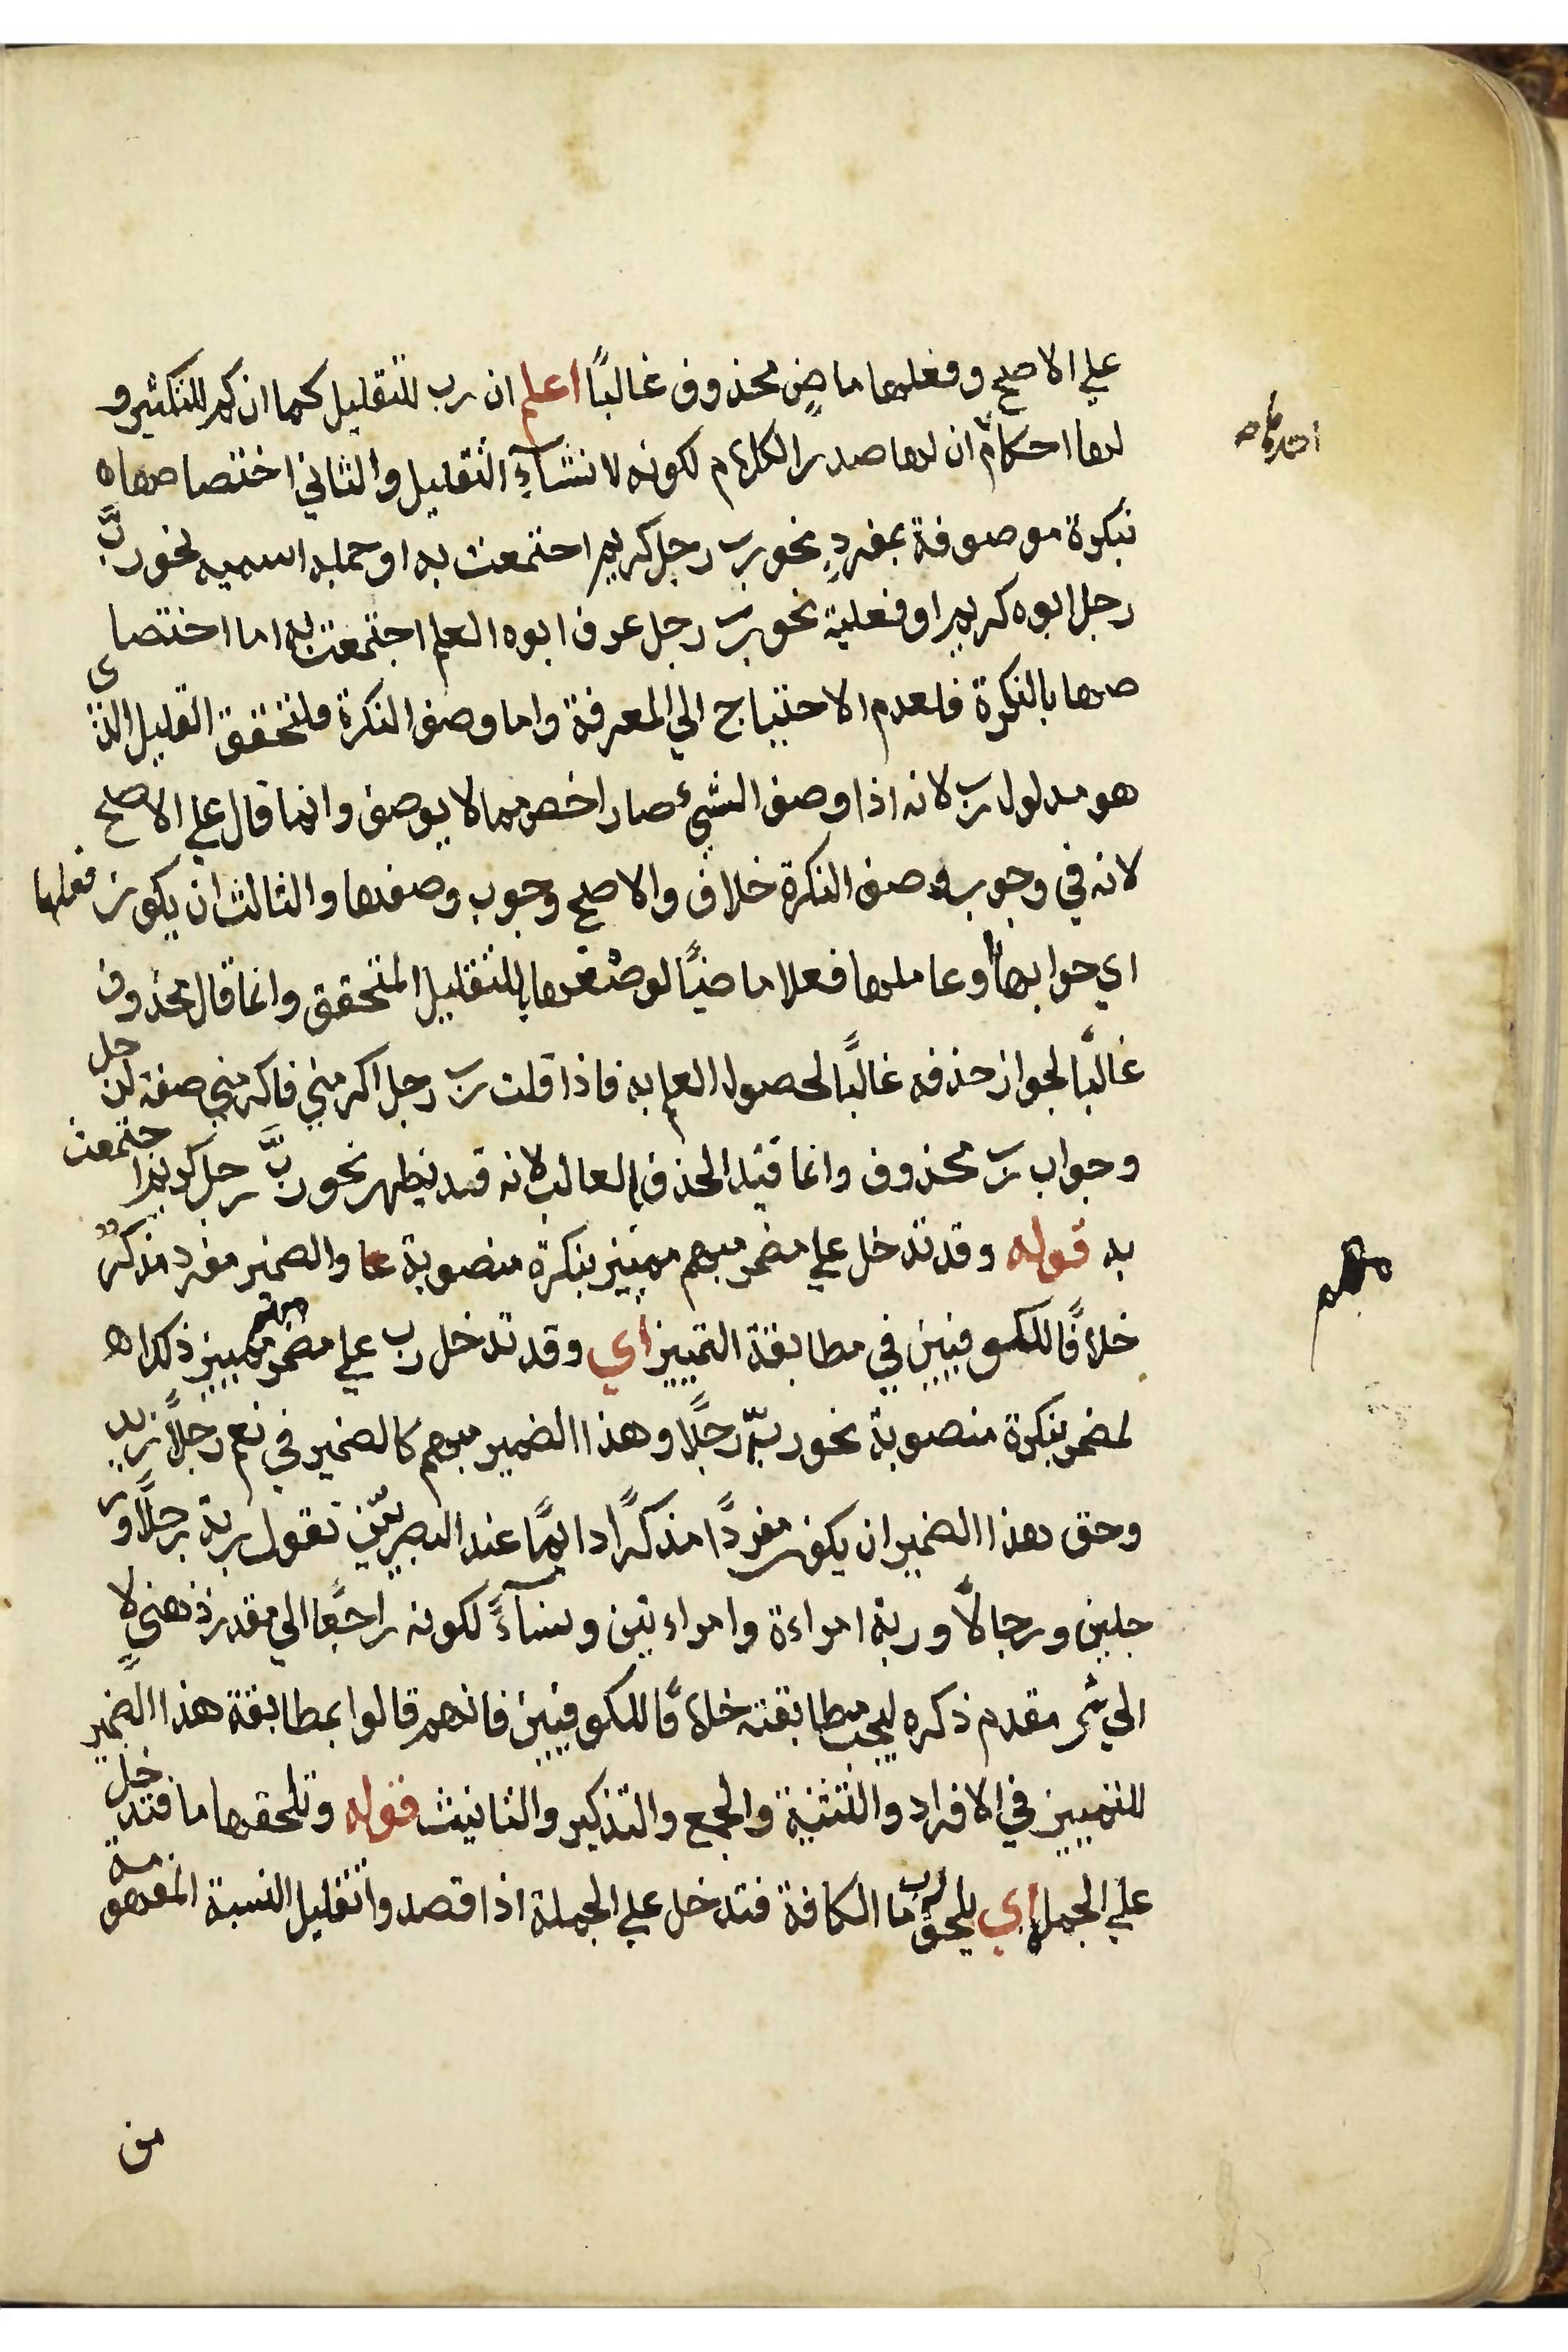 علي الاصح وفعلها ماضٍ محذوف غالبًا اعلم ان رب للتقليل كما ان كم للتكثير و
لها احكام ان لها صدر الكلام لكونه لانشآءِ التقليل والثاني اختصاصها ه
نبكرة موصوفة بمفردٍ نحو رب رجل كريم اجتمعت به او جمله اسميه نحو ربَّ
رجل ابوه كريم او فعلية نحو رب رجل عرف ابوه العلم اجتمعت به اما اختصا
صها بالنكرة فلعدم الاحتياج الي المعرفة واما وصف النكرة فلتحقق التقليل الذى
هو مدلول رب لانه اذا وصف الشيء صار اخص مما لا يوصف وانما قال علي الاصح
لانه في وجوب وصف النكرة خلاف والاصح وجوب وصفها والثالث ان يكون فعلها
اي جوابها وعاملها فعلا ماضيًا لوضعها للتقليل المتحقق وانما قال محذوف
غالبًا لجواز حذفه غالبًا لحصول العلم به فاذا قلت رب رجل اكرمني فاكرمني صفة لرجل
وجواب رب محذوف وانما قيد الحذف بالغالب لانه قد يظهر نحو ربَّ رجل كريم اجتمعت
به قوله وقد تدخل علي مضمر مبهم مميز بنكرة منصوبة والضمير مفرد مذكر
خلافًا للكوفيين في مطابقة التمييز اي وقد تدخل رب علي مضمر مبهم مميز ذلك ا
لمضمر بنكرة منصوبة نحو ربّه رجلًا وهذا الضمير مبهم كالضمير في نعم رجلًا زيد
وحق هذا الضمير ان يكون مفردًا مذكرًا دايمًا عند البصريّين تقول ربه رجلًا ور
جلين ورجالًا وربه امراءة وامراءتين ونسآءً لكونه راجعًا الي مقدر ذهني لا
الي شى مقدم ذكره ليجب مطابقته خلافًا للكوفيين فانهم قالوا بمطابقة هذا الضمير
للتمييز في الافراد والتثنية والجمع والتذكير والتانيث قوله وتلحقها ما فتدخل
علي الجمل اي يلحق رب ما الكافة فتدخل علي الجملة اذا قصدوا تقليل النسبة المفهومة
من